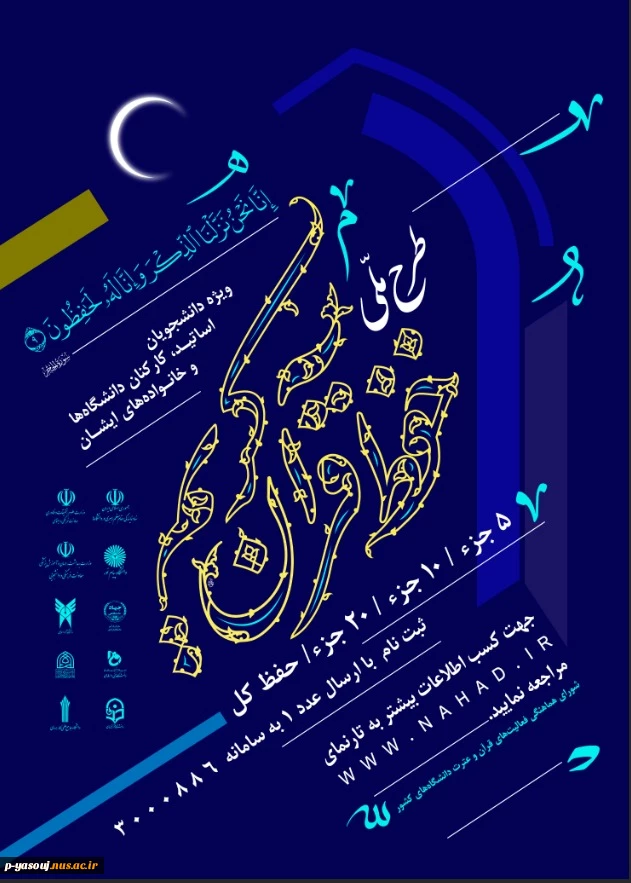 إِنَّا نَحْنُ نَزَّلْنَا الذِّكْرَ وَإِنَّا لَهُ لَحَافِظُونَ
ویژه دانشجویان
اساتید، کارکنان دانشگاه‌ها
و خانواده‌های ایشان
طرح ملّی
حفظ قرآن کریم
۵ جزء / ۱۰ جزء / ۲۰ جزء / حفظ کل
ثبت نام با ارسال عدد ۱ به سامانه ۳۰۰۰۸۸۶
جهت کسب اطلاعات بیشتر به تارنمای
WWW.NAHAD.IR
مراجعه نمایید.
شورای هماهنگی فعالیت‌های قرآن و عترت دانشگاه‌های کشور
p-yasouj.nus.ac.ir